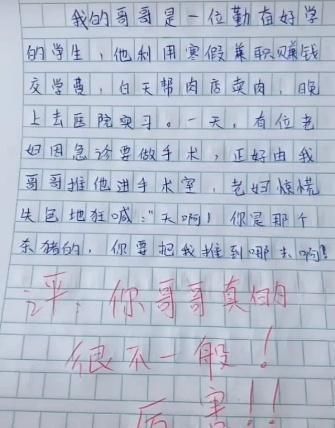 我的哥哥是一位勤奋好学
的学生,他利用寒假兼职赚钱
交学费,白天帮肉店卖肉,晚
上去医院实习。一天,有位老
妇因急诊要做手术,正好由我
哥哥推他进手术室,老妇惊慌
失色地狂喊:"天啊!你是那个
杀猪的,你要把我推到哪去啊!
评:你哥哥真的
很不一般!
厉害!!